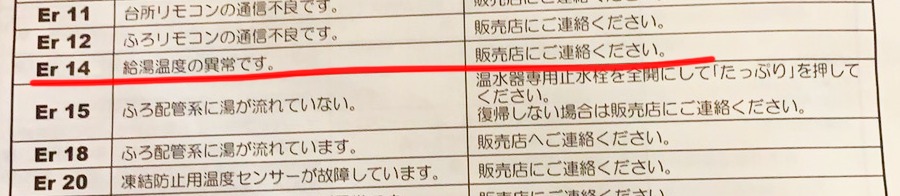 Er 11 台所リモコンの通信不良です。 販売店にご連絡ください。
Er 12 ふろリモコンの通信不良です。 販売店にご連絡ください。
Er 14 給湯温度の異常です。 販売店にご連絡ください。
Er 15 ふろ配管系に湯が流れていない。 温水器専用止水栓を全開にして「たっぷり」を押して
ください。
復帰しない場合は販売店にご連絡ください。
Er 18 ふろ配管系に湯が流れています。 販売店へご連絡ください。
Er 20 凍結防止用温度センサーが故障しています。 販売店にご連絡ください。